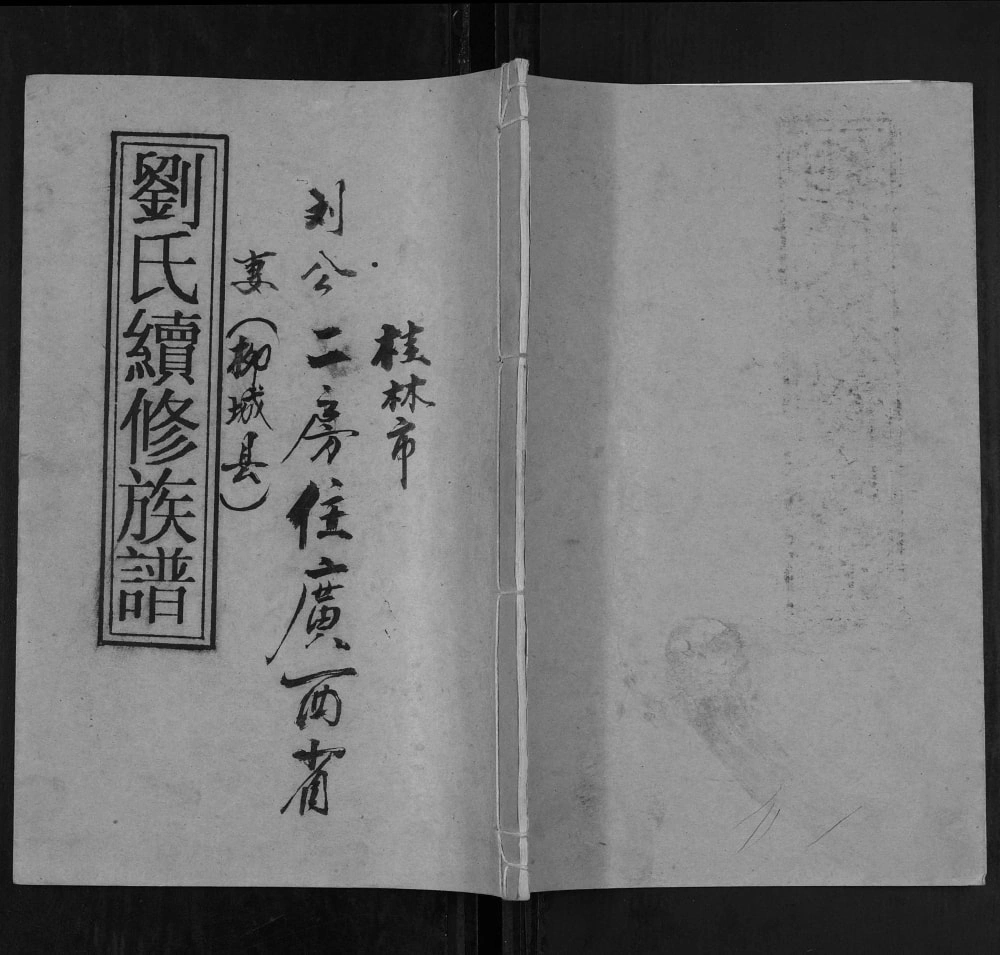 桂林市
刘公二房住廣西省
妻（柳城县）
劉氏續修族譜